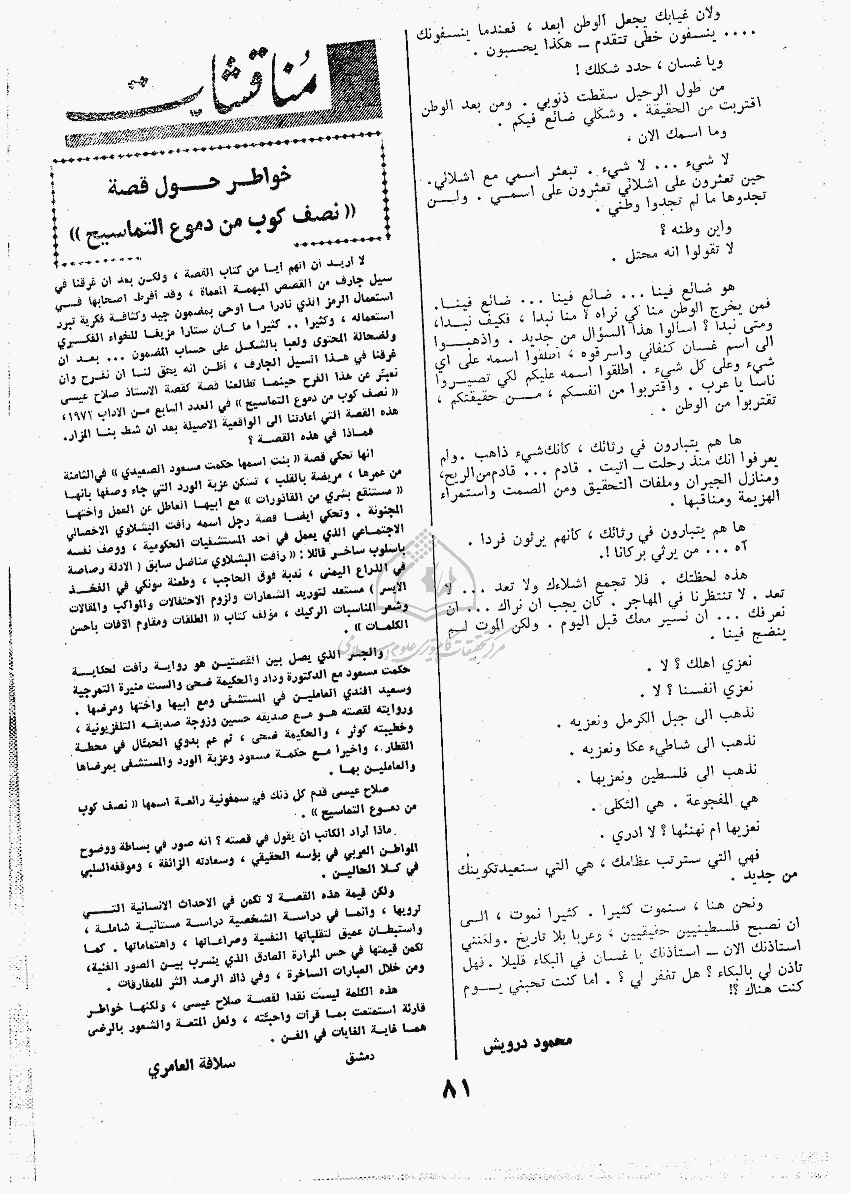 ولان غيابك يجعل الوطن ابعد ، فعندما ينسفونك
.... ينسفون خطى تتقدم ــ هكذا يحسبون .
ويا غسان ، حدد شكلك !
من طول الرحيل سقطت ذنوبي . ومن بعد الوطن
اقتربت من الحقيقة . وشكلي ضائع فيكم .
وما اسمك الان ،
لا شيء ... لا شيء . تبعثر اسمي مع اشلائي.
حين تعثرون على اشلائي تعثرون على اسمي . ولــن
تجدوها ما لم تجدوا وطني .
واين وطنه ؟
لا تقولوا انه محتل .
هو ضائع فينا ... ضائع فينا ... ضائع فينــا.
فمن يخرج الوطن منا كي نراه ؟ منا نبدا ، فكيف نبـدا،
ومتى نبدا ؟ اسألوا هذا السؤال من جديد . واذهبــوا
الى اسم غسان كنفاني واسرقوه ، اطلقوا اسمه على اي
شيء وعلى كل شيء . اطلقوا اسمه عليكم لكي تصيــروا
ناسا يا عرب . واقتربوا من انفسكم ، مــن حقيقتكم ،
تقتربوا من الوطن .
ها هم يتبارون في رثائك ، كأنك شيء ذاهب .ولم
يعرفوا انك منذ رحلت ــ اتيت . قادم ... قادم من الريح،
ومنازل الجيران وملفات التحقيق ومن الصمت واستمراء
الهزيمة ومناقبها .
ها هم يتبارون في رثائك ، كأنهم يرثون فردا .
آه ... من يرثي بركانا !.
هذه لحظتك . فلا تجمع اشلاءك ولا تعد ... لا
تعد . لا تنتظرنا في المهاجر . كان يجب ان نراك ... ان
نعرفك ... أن نسير معك قبل اليوم . ولكن الموت لــم
ينضج فينا .
نعزي اهلك ؟ لا .
نعزي انفسنا ؟ لا .
نذهب الى جبل الكرمل ونعزيه .
نذهب الى شاطيء عكا ونعزيه .
نذهب الى فلسطين ونعزيها .
هي المفجوعة . هي الثكلى .
نعزيها ام نهنئها ؟ لا ادري .
فهي التي سترتب عظامك ، هي التي ستعيدتكوينك
من جديد .
ونحن هنا ، سنموت كثيرا . كثيرا نموت ، الــى
ان نصبح فلسطينيين حقيقيين ، وعربا بلا تاريخ . ولكنني
استأذنك الان ــ استأذنك يا غسان في البكاء قليلا . فهل
تأذن لي بالبكاء ؟ هل تغفر لي ؟ . اما كنت تحبني يــوم
كنت هناك ؟!
محمود درويش
مُناقشات
خواطــر حــول قصة
(( نصف كوب من دموع التماسيح ))
لا اريد ان اتهم ايا من كتاب القصة ، ولكن بعد ان غرقنا في
سيل جارف من القصص المبهمة المعماة ، وقد أفرط اصحابها فــي
استعمال الرمز الذي نادرا مــا اوحى بمضمون جيد وكثافة فكرية تبرد
استعماله ، وكثيرا .. كثيرا ما كــان ستارا مزيفا للخواء الفكــري
ولضحالة المحتوى ولعبا بالشكل على حساب المضمون ... بعــد ان
غرقنا في هــذا السيل الجارف ، أظن انه يحق لنــا ان نفــرح وان
نعبر عن هذا الفرح حينمــا تطالعنا قصة كقصة الاستاذ صلاح عيسى
(( نصف كوب من دموع التماسيح )) في العدد السابع من الاداب ١٩٧٢،
هذه القصة التي اعادتنا الى الواقعية الاصيلة بعد ان شط بنــا المزار.
فمــاذا في هذه القصة ؟
انها تحكي قصة (( بنت اسمها حكمت مسعود الصعيدي )) في الثامنة
من عمرها ، مريضة بالقلب ، تسكن عزبة الورد التي جاء وصفها بانهــا
(( مستنقع بشري من القاذورات )) مع ابيهــا العاطل عن العمل وأختهــا
المجنونة . وتحكي ايضــا قصة رجل اسمه رأفت البشلاوي الاخصائي
الاجتماعي الذي يعمل في أحد المستشفيات الحكومية ، ووصف نفسه
باسلوب ساخر قائلا : (( رأفت البشلاوي مناضل سابق ( الادلة رصاصة
في الذراع اليمنى ، ندبة فوق الحاجب ، وطعنة سونكي في الفخــذ
الايسر ) مستعد لتوريد الشعارات ولزوم الاحتفالات والمواكب والمقالات
وشعر المناسبات الركيك ، مؤلف كتاب (( الطلقات ومقاوم الآفات باحسن
الكلمات )) .
والجسر الذي يصل بين القصتين هو روايــة رأفت لحكايــة
حكمت مسعود مع الدكتورة وداد والحكيمة ضحى والست منيرة التمرجية
وسعيد الهندي العاملين في المستشفى ومع ابيها واختها ومرضها .
وروايته لقصته هــو مــع صديقه حسين وزوجة صديقــه التلفزيونية ،
وخطيبته كوثر ، والحكيمة ضحى ، ثم عم بدوي الحمّال في محطــة
القطار ، واخيرا مــع حكمة مسعود وعزبة الورد والمستشفى بمرضاها
والعاملين بهــا .
صلاح عيسى قدم كل ذلك في سمفونية رائعــة اسمها (( نصف كوب
من دمــوع التماسيح )) .
ماذا أراد الكاتب ان يقول في قصته ؟ انه صور في بساطة ووضوح
المواطن العربي في بؤسه الحقيقي ، وسعادته الزائفة ، وموقفه السلبي
في كــلا الحالين .
ولكن قيمة هذه القصة لا تكمن في الاحداث الانسانية التــي
ترويها ، وانمــا في دراســة الشخصية دراسة مستانية شاملة ،
واستبطــان عميق لتقلباتها النفسية وصراعــاتها ، واهتماماتها . كمــا
تكمن قيمتها في حس المرارة الصادق الذي ينسرب بيــن الصور الفنية،
ومن خلال العبارات الساخرة ، وفي ذاك الرصد الثر للمفارقات .
هذه الكلمة ليست نقدا لقصة صلاح عيسى ، ولكنهــا خواطــر
قارئة استمتعت بمــا قرأت واحبّته ، ولعل المتعة والشعور بالرضى
همــا غاية الغايات في الفن .
دمشق
سلافة العامري
٨١